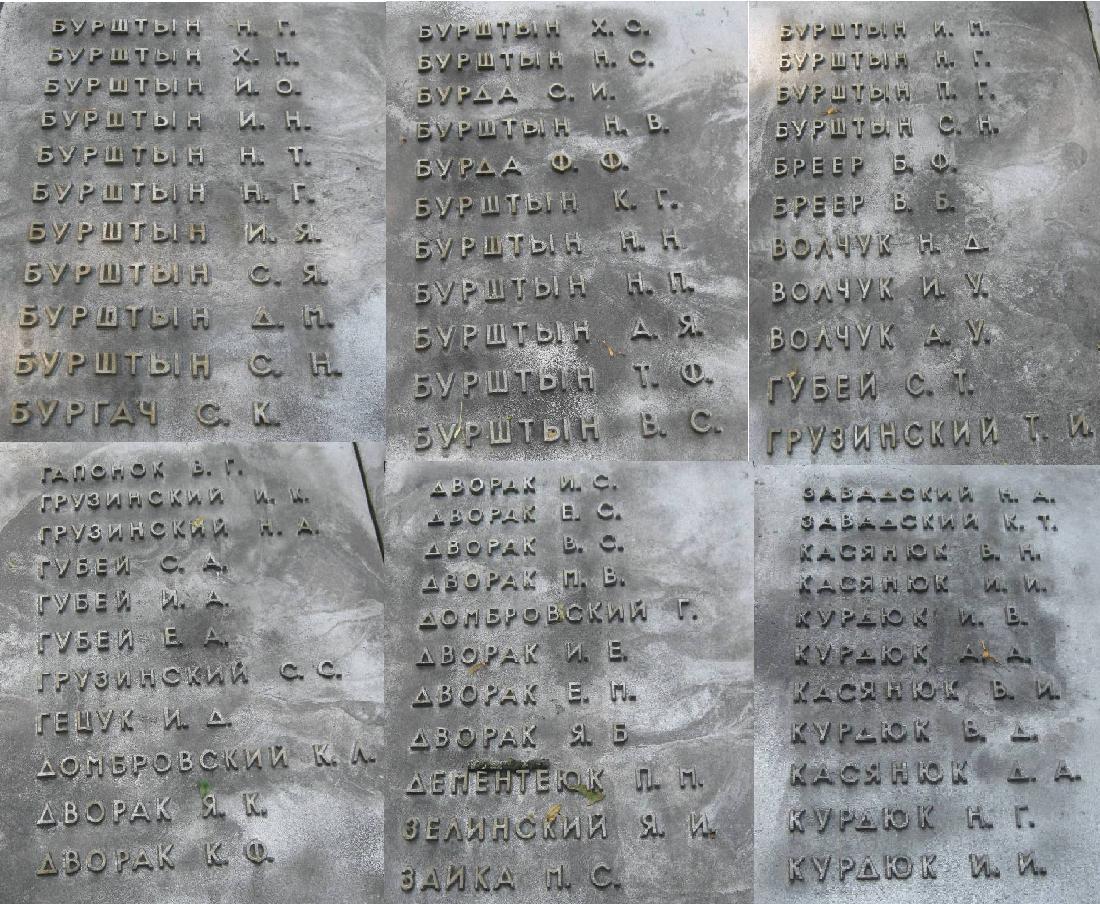 БУРШТЫН Н. Г.
БУРШТЫН Х. М.
БУРШТЫН И. О.
БУРШТЫН И. Н.
БУРШТЫН Н. Т.
БУРШТЫН Н. Г.
БУРШТЫН И. Я.
БУРШТЫН С. Я.
БУРШТЫН Д. М.
БУРШТЫН С. Н.
БУРГАЧ С. К.
БУРШТЫН Х. С.
БУРШТЫН Н. С.
БУРДА С. И.
БУРШТЫН Н. В.
БУРДА Ф. Ф.
БУРШТЫН К. Г.
БУРШТЫН Н. Н.
БУРШТЫН Н. П.
БУРШТЫН А. Я.
БУРШТЫН Т. Ф.
БУРШТЫН В. С.
БУРШТЫН И. М.
БУРШТЫН Н. Г.
БУРШТЫН П. Г.
БУРШТЫН С. Н.
БРЕЕР Б. Ф.
БРЕЕР В. Б.
ВОЛЧУК Н. Д.
ВОЛЧУК И. У.
ВОЛЧУК А. У.
ГУБЕЙ С. Т.
ГРУЗИНСКИЙ Т. И.
ГАПОНОК В. Г.
ГРУЗИНСКИЙ И. К.
ГРУЗИНСКИЙ Н. А.
ГУБЕЙ С. А.
ГУБЕЙ И. А.
ГУБЕЙ Е. А.
ГРУЗИНСКИЙ С. С.
ГЕЦУК И. Д.
ДОМБРОВСКИЙ К. Л.
ДВОРАК Я. К.
ДВОРАК К. Ф.
ДВОРАК И. С.
ДВОРАК Е. С.
ДВОРАК В. С.
ДВОРАК М. В.
ДОМБРОВСКИЙ Г.
ДВОРАК И. Е.
ДВОРАК Е. М.
ДВОРАК Я. Б
ДЕМЕНТЕЮК П. М.
ЗЕЛИНСКИЙ Я. И.
ЗАЙКА М. С.
ЗАВАДСКИЙ Н. А.
ЗАВАДСКИЙ К. Т.
КАСЯНЮК В. Н.
КАСЯНЮК И. И.
КУРДЮК И. В.
КУРДЮК Д. Д.
КАСЯНЮК В. И.
КУРДЮК В. Д.
КАСЯНЮК Д. А.
КУРДЮК Н. Г.
КУРДЮК И. И.